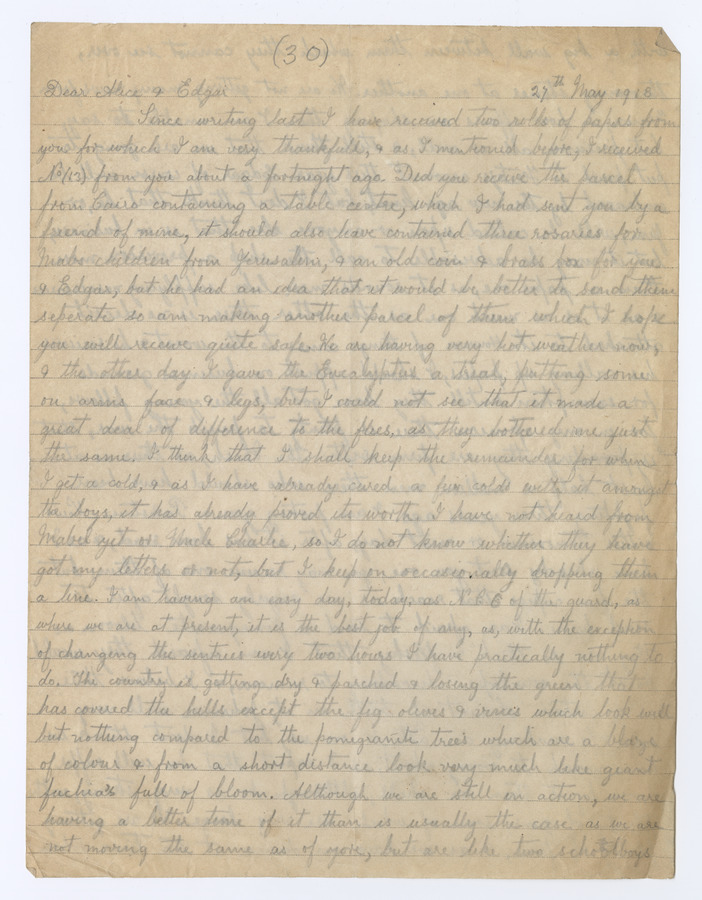 (30)
Dear Alice & Edgar 27th May 1918
Since writing last I have received two rolls of papers from
you for which I am very thankfull, & as I mentioned before, I received
No (13) from you about a fortnight ago. Did you receive the parcel
from Cairo containing a table centre, which I had sent you by a
friend of mine, it should also have contained three rosaries for
Mabs children from Jerusalem, & an old coin & brass box for you
& Edgar, but he had an idea that it would be better to send them
seperate so am making another parcel of them which I hope
you will receive quite safe. We are having very hot weather now,
& the other day I gave the Eucalyptus a trial, putting some
on arms face & legs, but I could not see that it made a
great deal of difference to the flies, as they bothered me just
the same. I think that I shall keep the remainder for when
I get a cold, & as I have already cured a few colds with it amongst
the boys, it has already proved its worth. I have not heard from
Mabel yet or Uncle Charlie, so I do not know whether they have
got my letters or not, but I keep on occasionally dropping them
a line. I am having an easy day, today, as N.C.O of the guard, as
where we are at present, it is the best job of any, as, with the exception
of changing the sentries every two hours I have practically nothing to
do. The country is getting dry & parched & losing the green that
has covered the hills except the fig olives & vines which look well
but nothing compared to the pomegranite trees which are a blaze
of colour & from a short distance look very much like giant
fuchia's full of bloom. Although we are still in action, we are
having a better time of it than is usually the case as we are
not moving the same as of yore, but are like two schoolboys